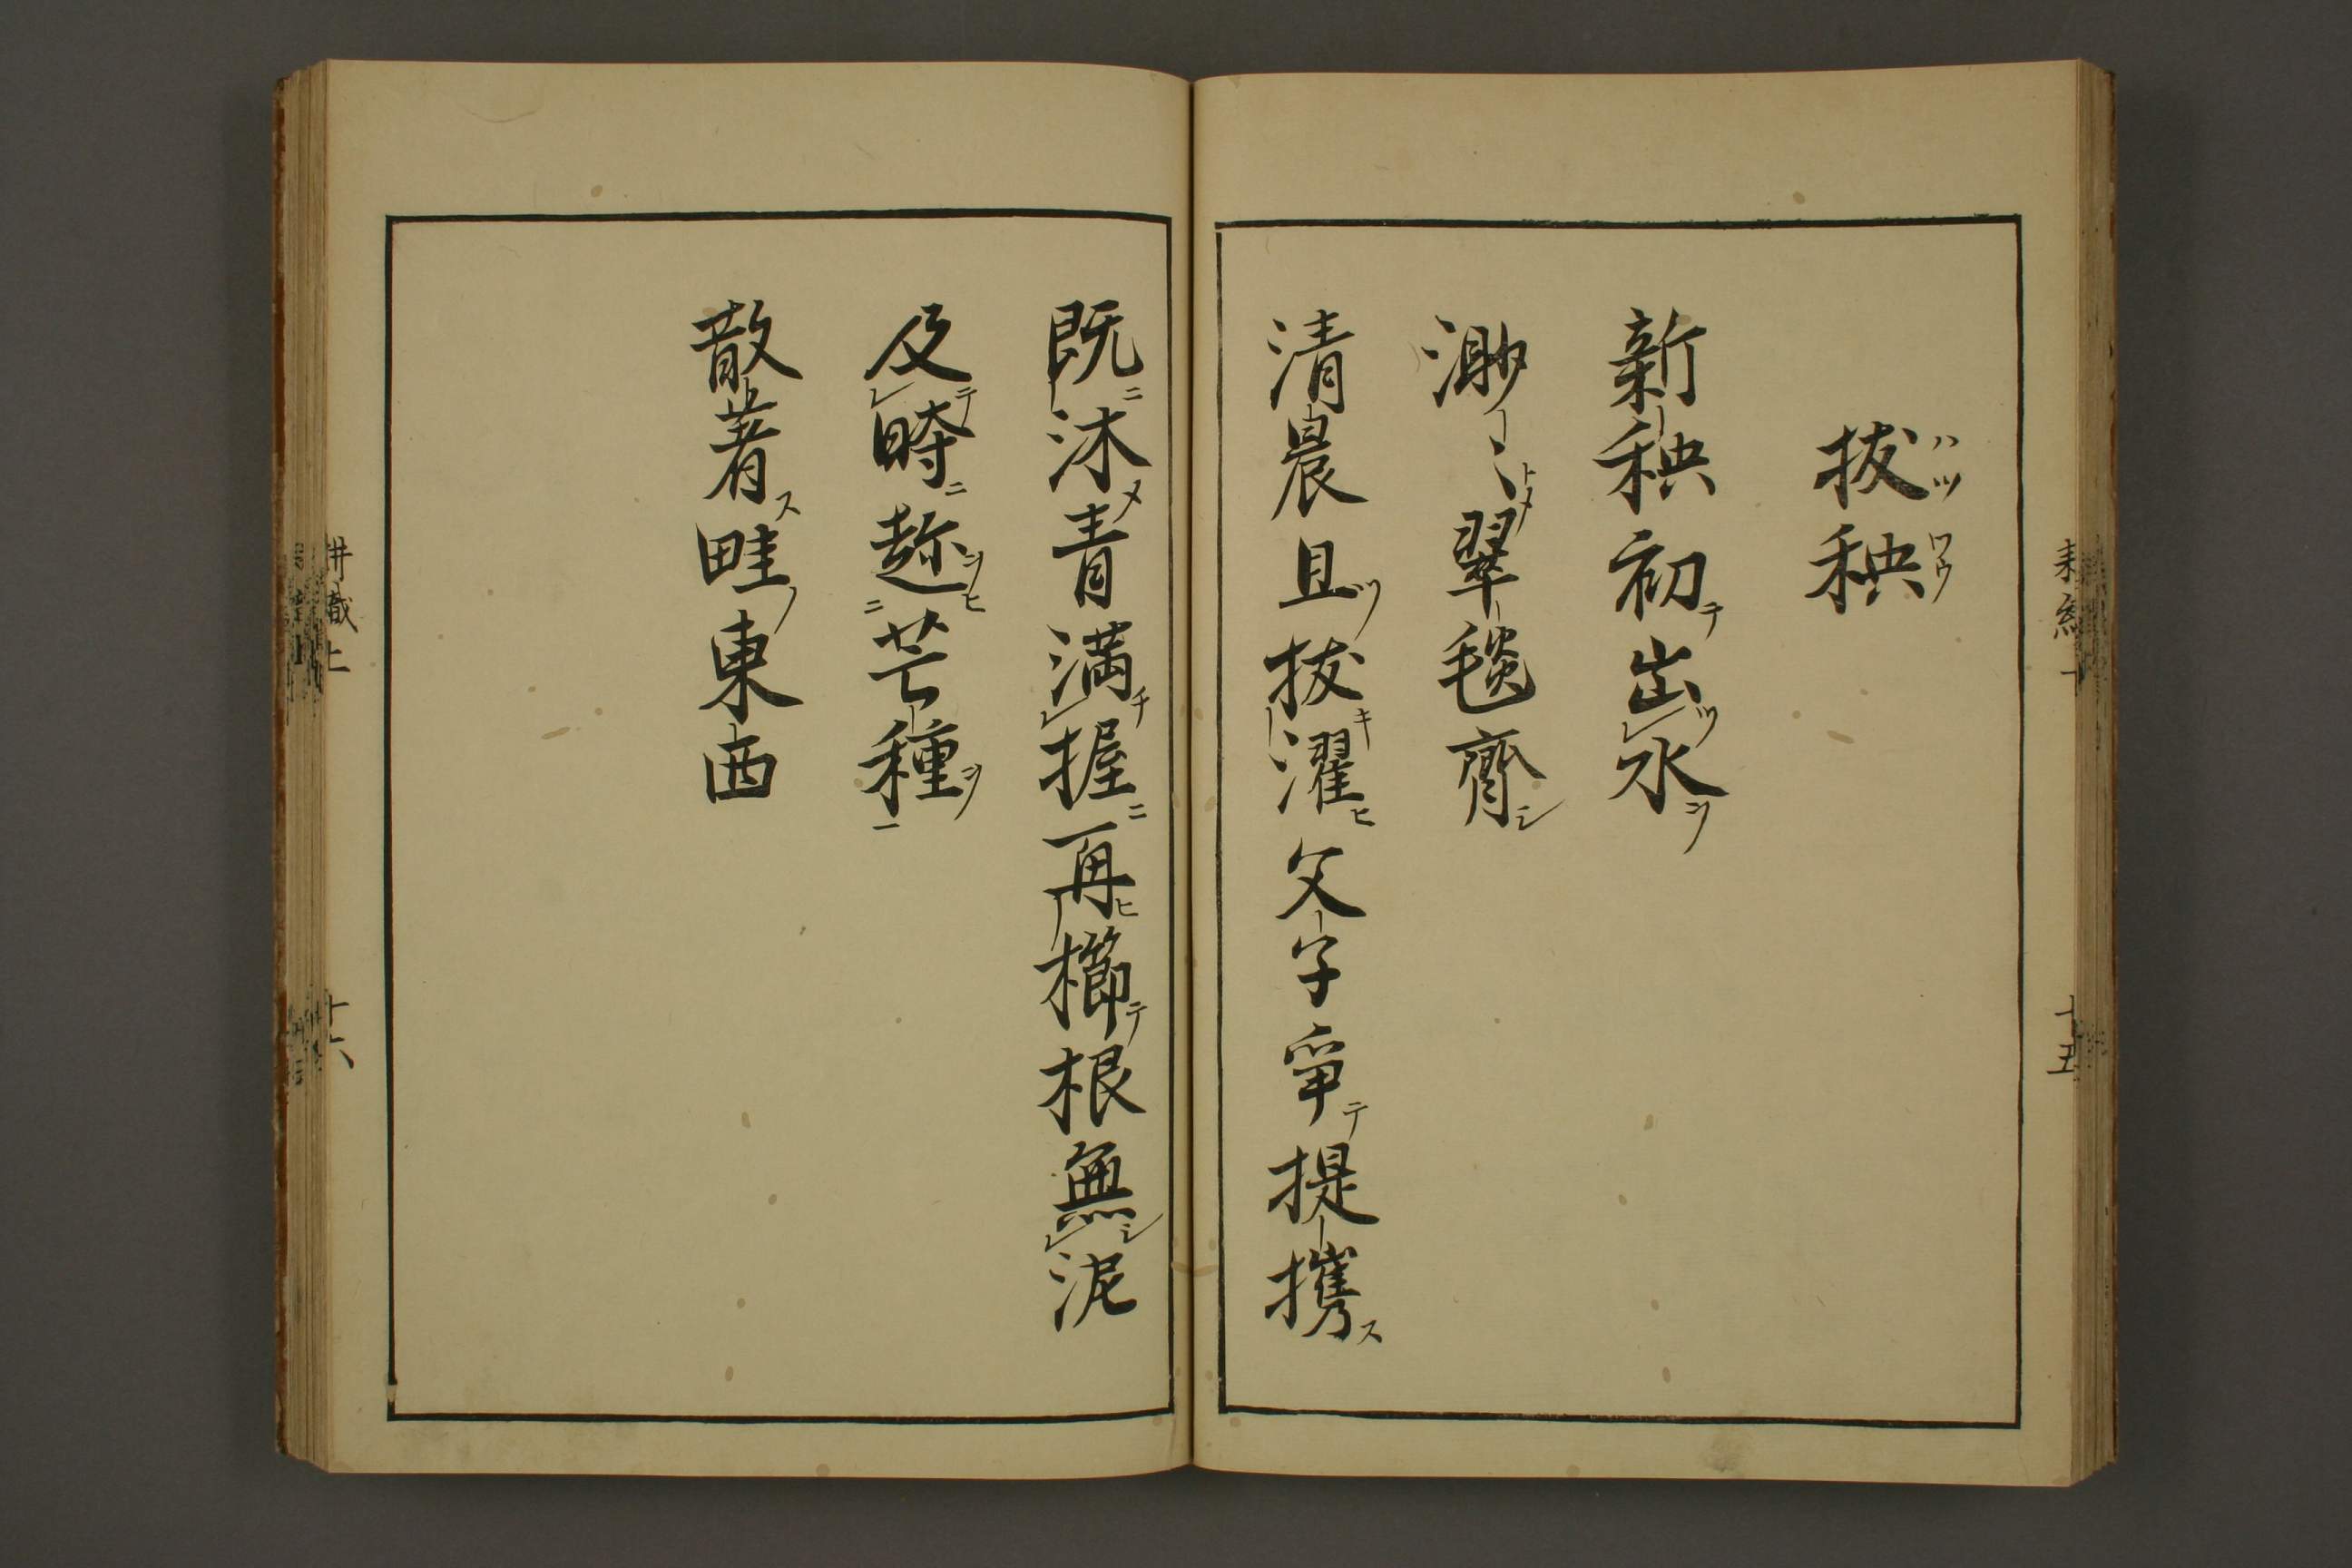 拔秧
新秧初出水
渺〻翠毯齊
清晨且拔濯父子爭提攜
既沐青満握再櫛根無泥
及時趂芒種
散著畦東西
耕織上
十六
十五